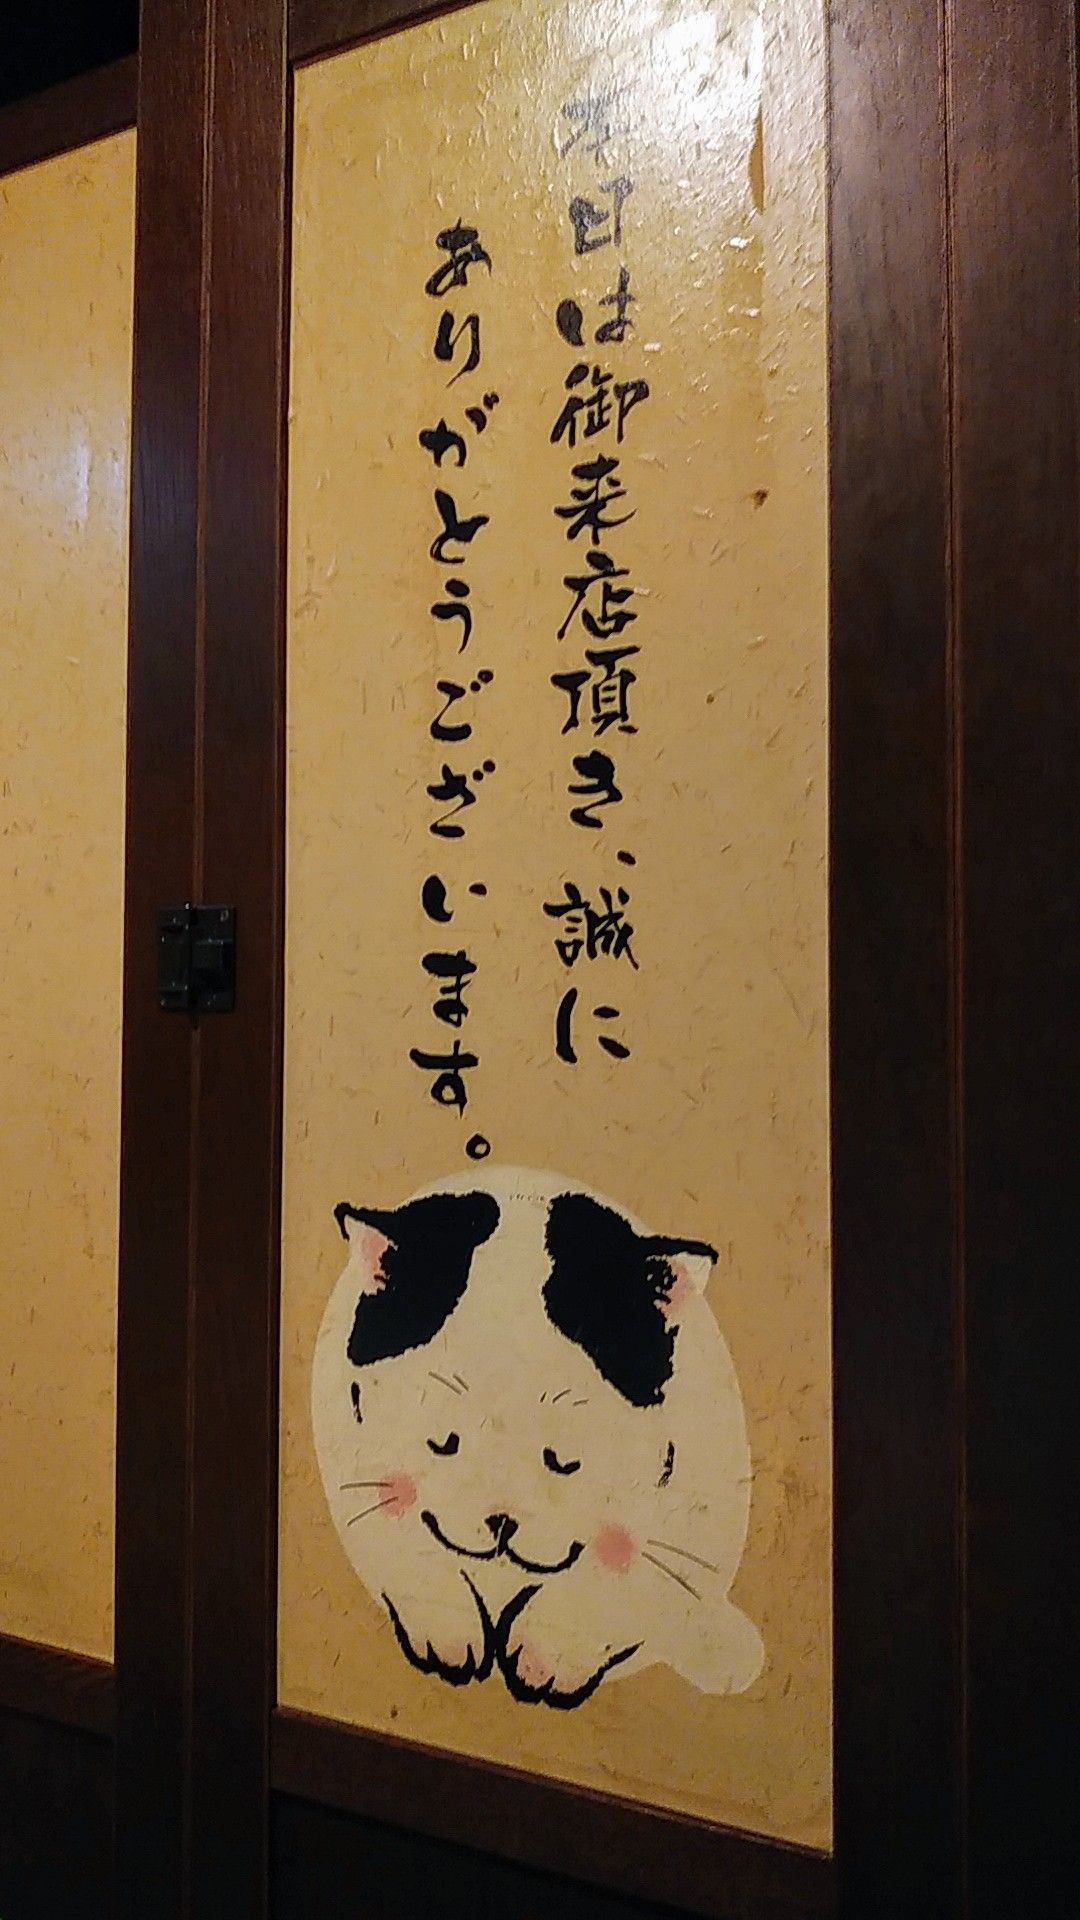 本日は御来店頂き、誠に
ありがとうございます。